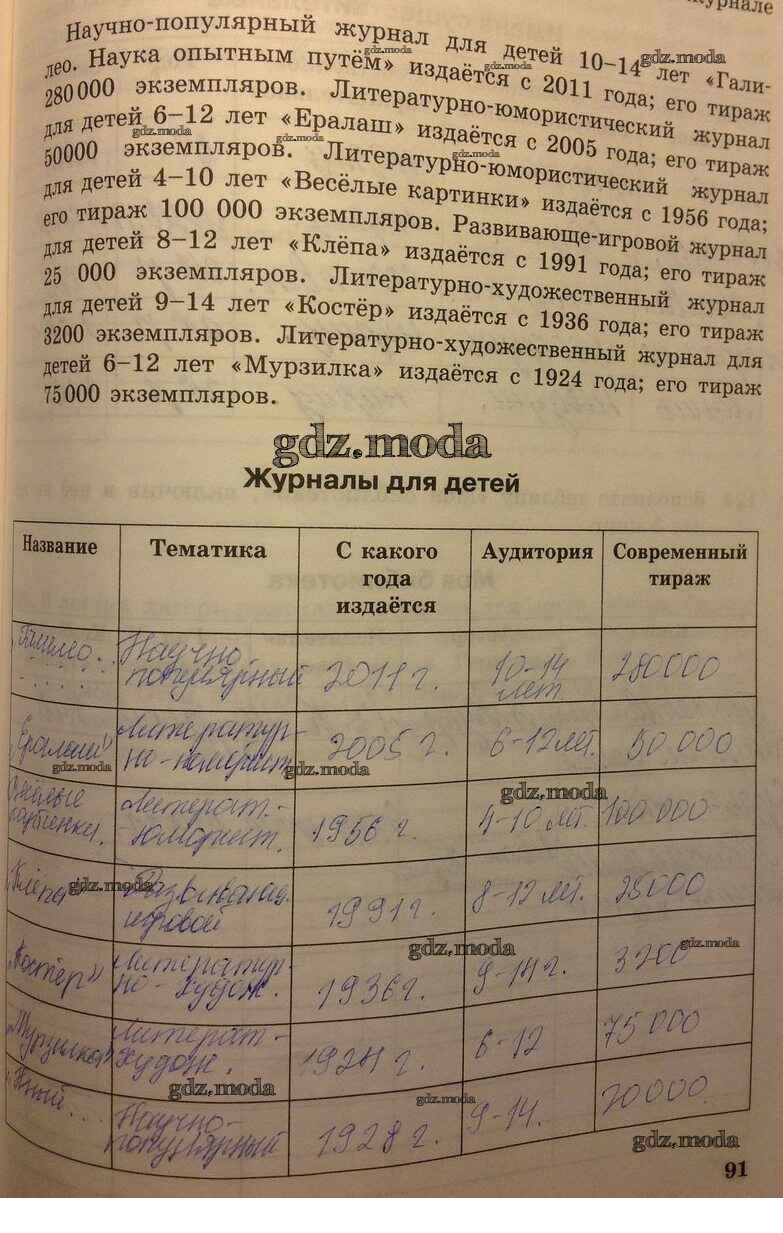 журнале
Научно-популярный журнал для детей 10–14 лет «Гали-
лео. Наука опытным путём» издаётся с 2011 года; его тираж
280 000 экземпляров. Литературно-юмористический журнал
для детей 6–12 лет «Ералаш» издаётся с 2005 года; его тираж
50000 экземпляров. Литературно-юмористический журнал
для детей 4–10 лет «Весёлые картинки» издаётся с 1956 года;
его тираж 100 000 экземпляров. Развивающе-игровой журнал
для детей 8–12 лет «Клёпа» издаётся с 1991 года; его тираж
25 000 экземпляров. Литературно-художественный журнал
для детей 9–14 лет «Костёр» издаётся с 1936 года; его тираж
3200 экземпляров. Литературно-художественный журнал для
детей 6–12 лет «Мурзилка» издаётся с 1924 года; его тираж
75 000 экземпляров.
gdz.moda
Журналы для детей
Название Тематика С какого года издаётся Аудитория Современный тираж
Научно популярный 2011 г. 10-14 лет 280000
"Ералаш" Литератур-но-юморист. 2005 г. 6-12 лет. 50 000
Весёлые картинки. Литерат.-юморист. 1956 г. 4-10 лет. 100 000
"Клёпа" игровой 1991 г. 8-12 лет. 25000
"Костёр" Литератур-но-худож. 1936 г. 9-14 г. 3200
"Мурзилка" Литерат-худож. 1924 г. 6-12 75 000
"Юный... Научно-популярный 1928 г. 9-14. 20000.
gdz.moda
91